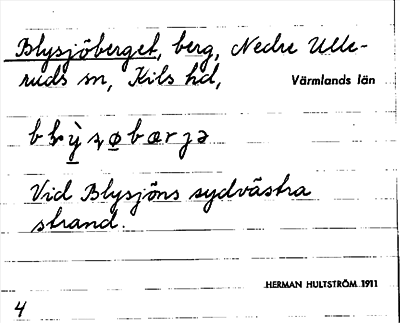 Blysjöberget, berg, Nedre Ulle-
ruds sn, Kils hd,
Värmlands län
Vid Blysjöns sydvästra
strand.
HERMAN HULTSTRÖM 1911
4